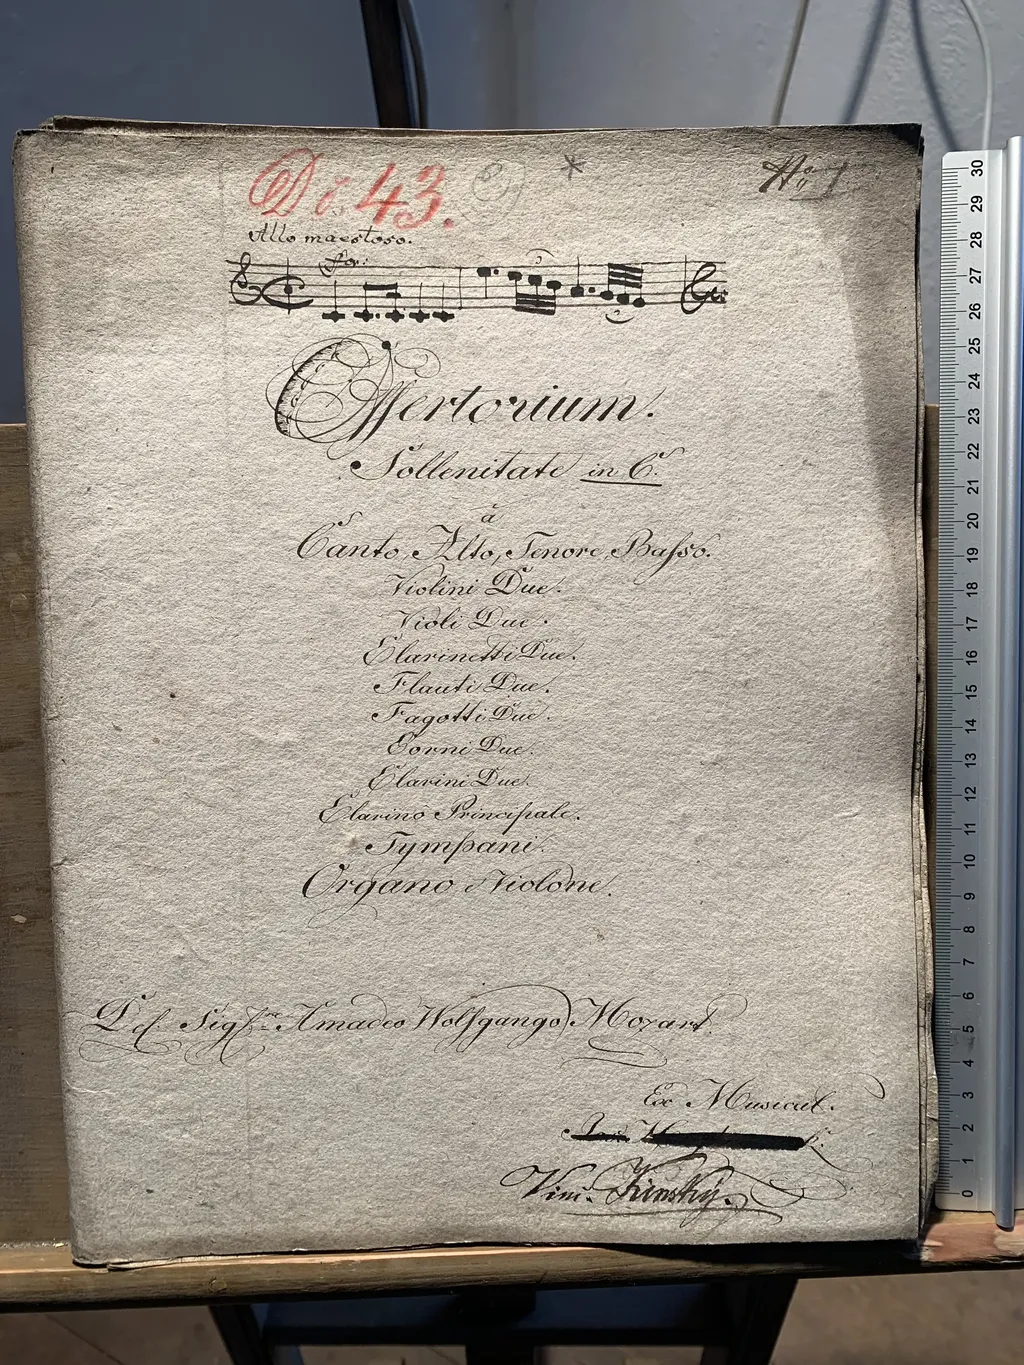 Do 43.
No 1
Allo maestoso.
for:
Offertorium.
Sollenitate in C.
à
Canto, Alto, Tenore, Basso.
Violini Due.
Violi Due.
Clarinetti Due.
Flauti Due.
Fagotti Due.
Corni Due.
Clarini Due.
Clarino Principale.
Tympani.
Organo Violone.
Del Sig:re Amadeo Wolfgango Mozart.
Ex Musical.
Kinsky.
30
29
28
27
26
25
24
23
22
21
20
19
18
17
16
15
14
13
12
11
10
9
8
7
6
5
4
3
2
1
0